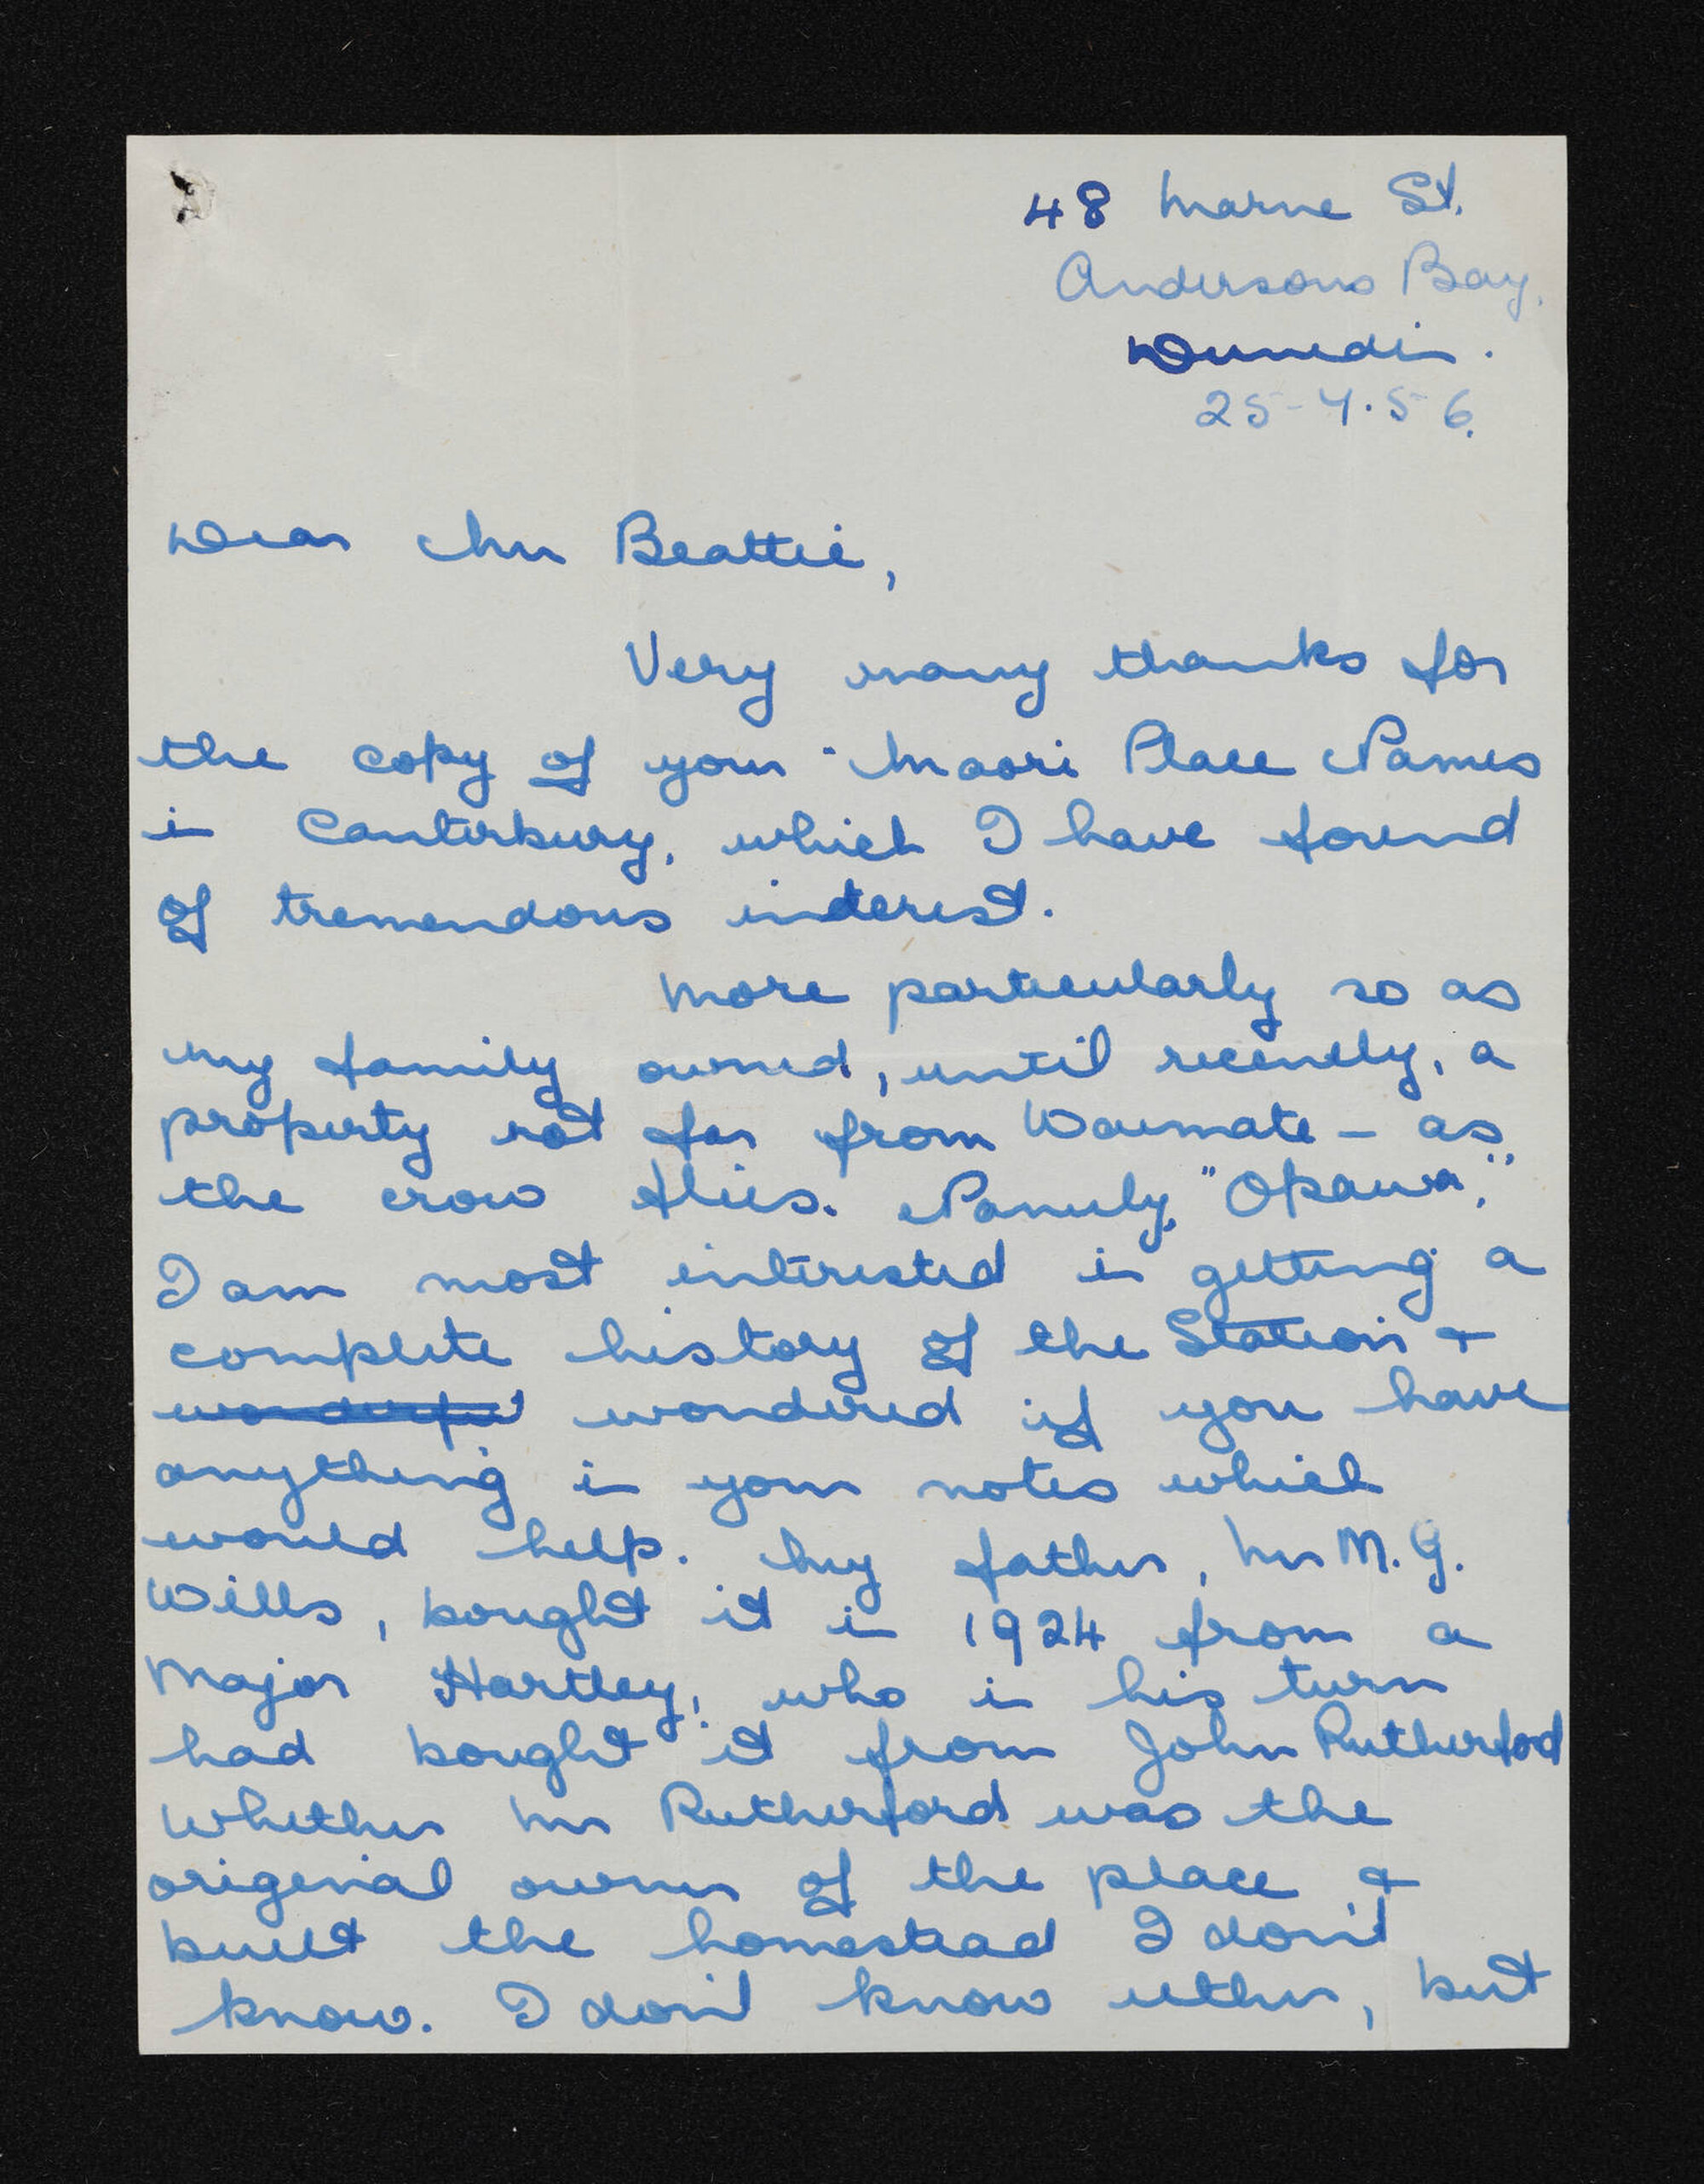 48 Marne St.
Andersons Bay,
Dunedin.
25-4.56.
Dear Mr Beattie,
Very many thanks for
the copy of your "Maori Place Names
in Canterbury, which I have found
of tremendous interest.
More particularly so as
my family owned, until recently, a
property not far from Waimate - as
the crow flies. Namely, "Opawa".
I am most interested in getting a
complete history of the Station &
wonderful wondered if you have
anything in your notes which
would help. My father, Mr M. G.
Wills, bought it in 1924 from a
Major Hartley, who in his turn
had bought it from John Rutherford
Whether Mr Rutherford was the
original owner of the place &
built the homestead I don't
know. I don't know either, but